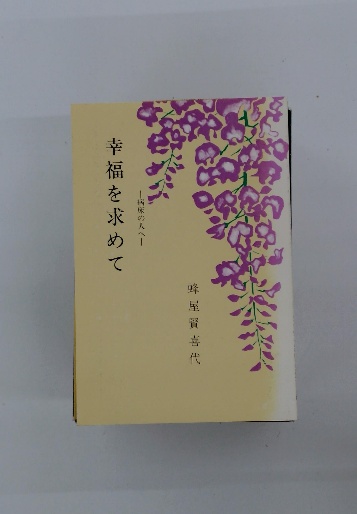 幸福を求めて
―病床の人へ―
蜂屋賢喜代